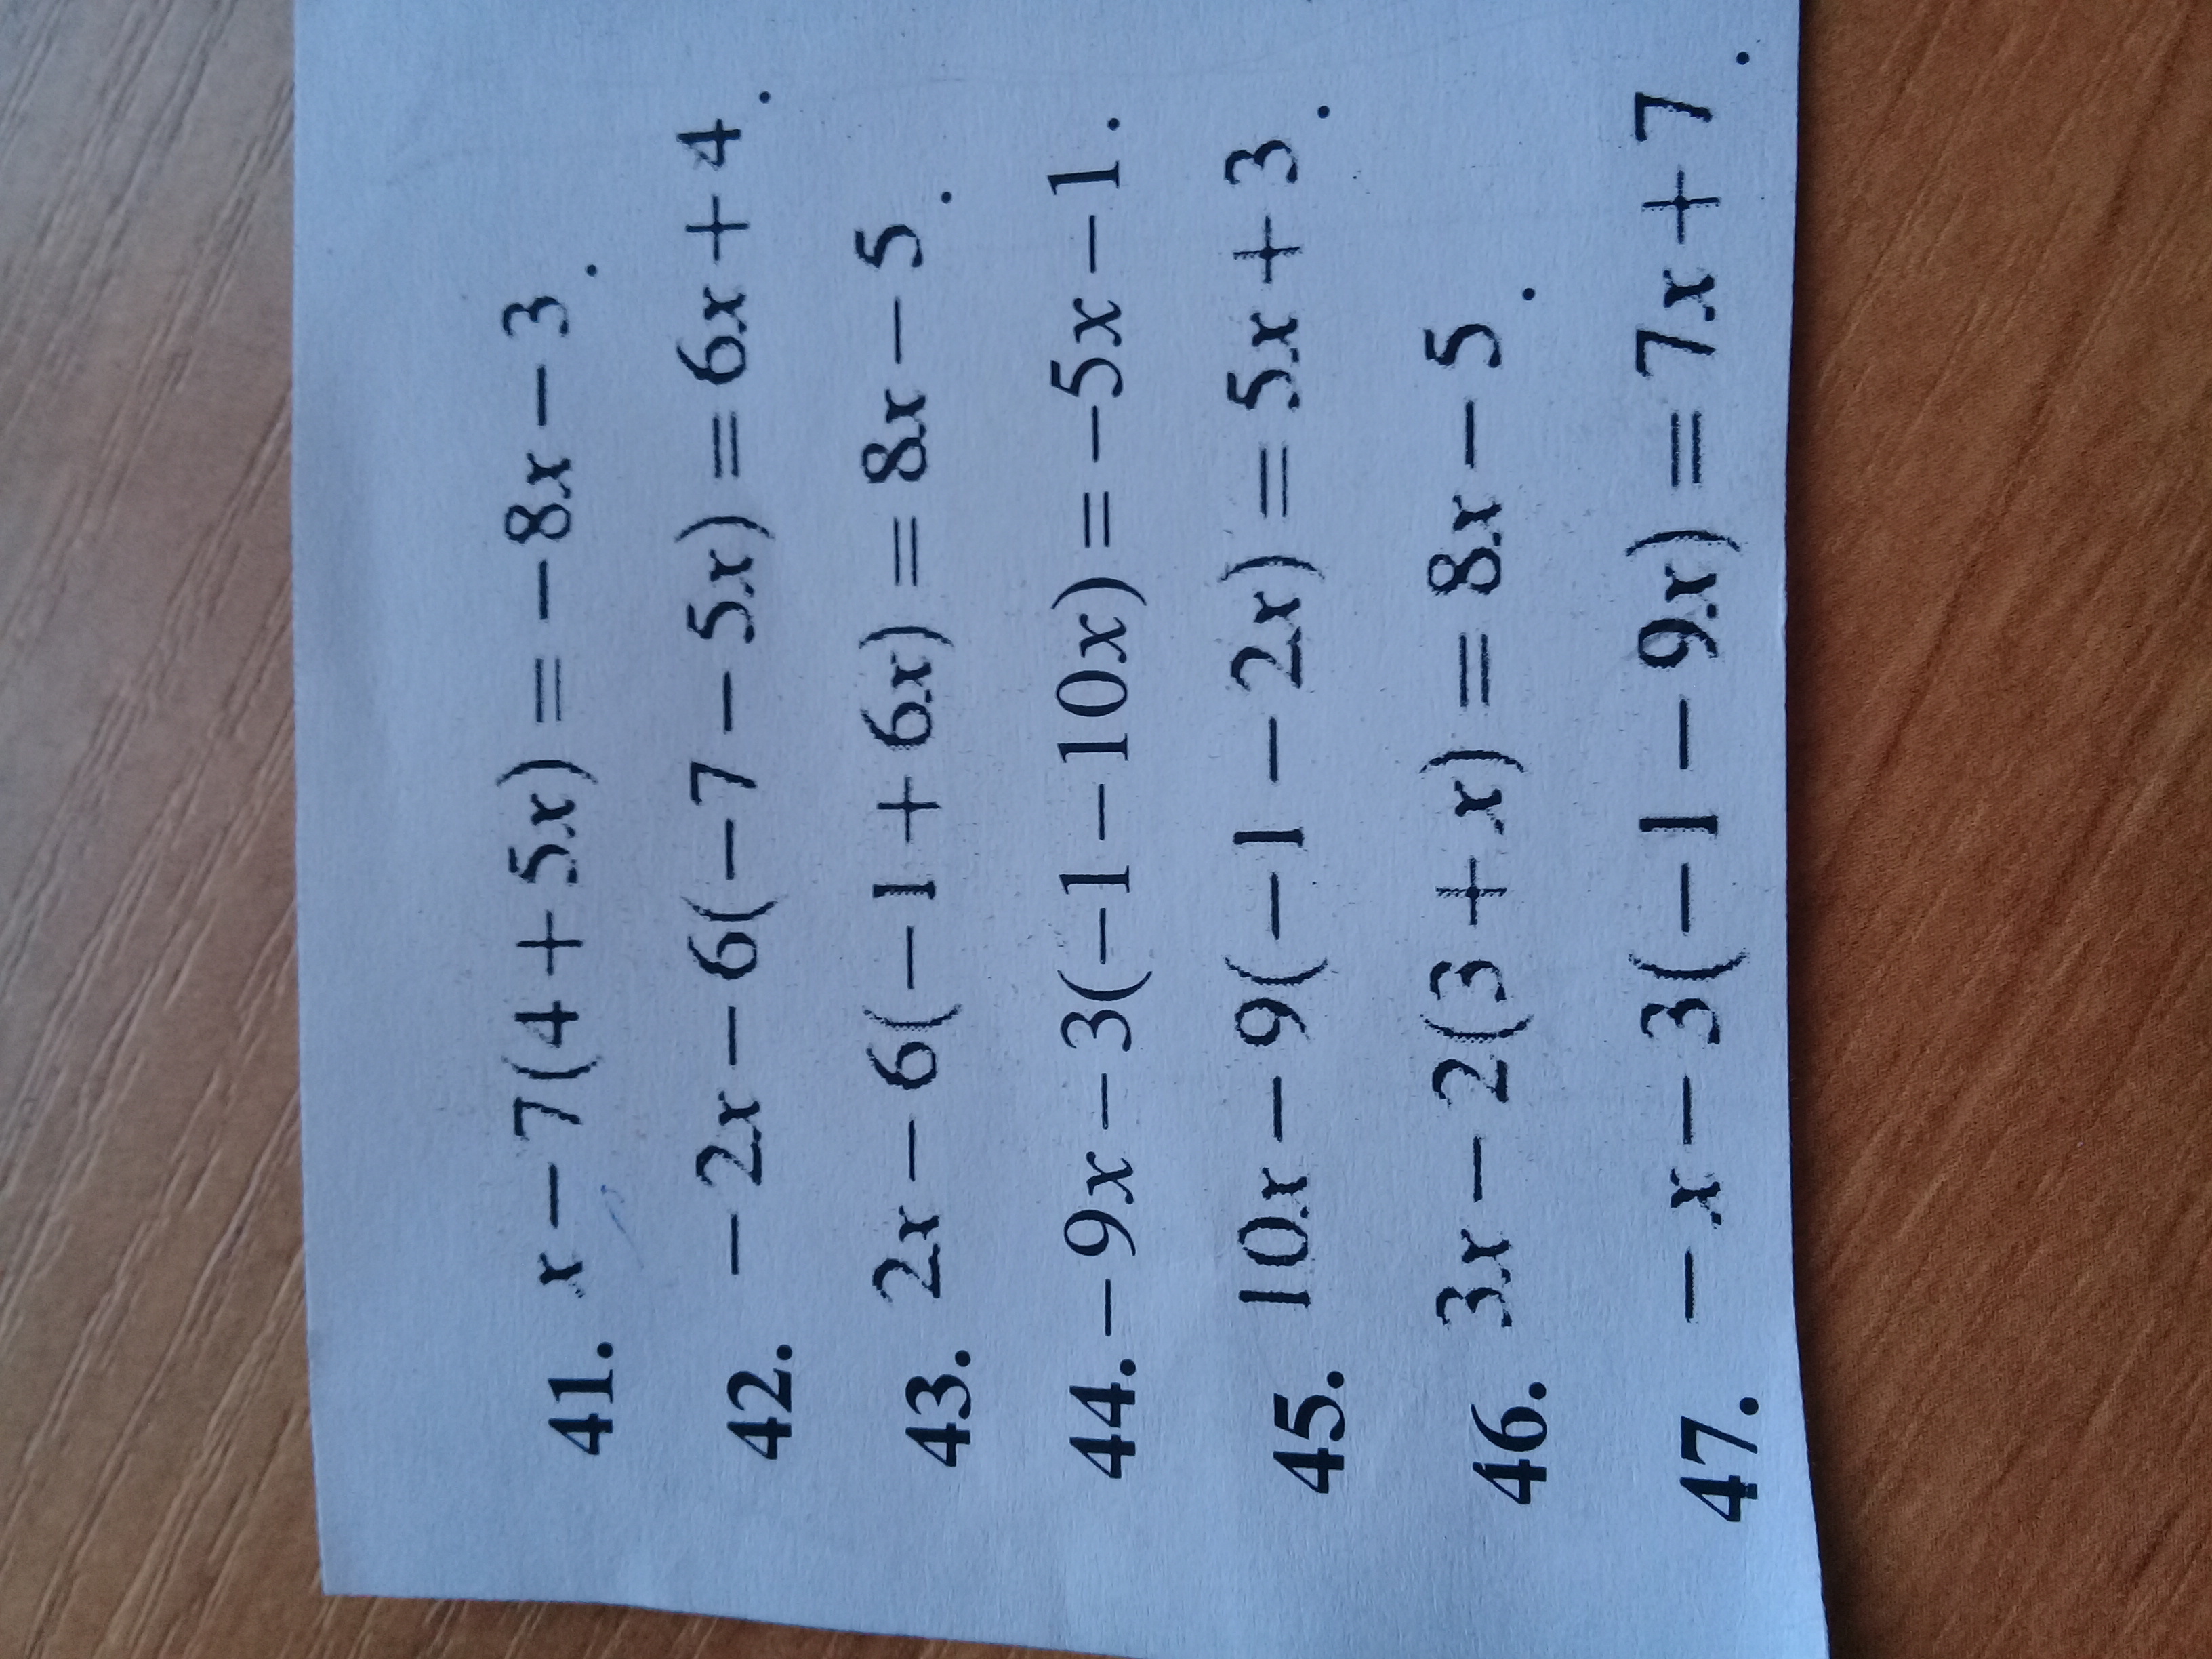 41. x − 7(4 + 5x) = −8x − 3.
42. −2x − 6(−7 − 5x) = 6x + 4.
43. 2x − 6(−1 + 6x) = 8x − 5.
44. −9x − 3(−1 − 10x) = −5x − 1.
45. 10x − 9(−1 − 2x) = 5x + 3.
46. 3x − 2(3 + x) = 8x − 5.
47. −x − 3(−1 − 9x) = 7x + 7.